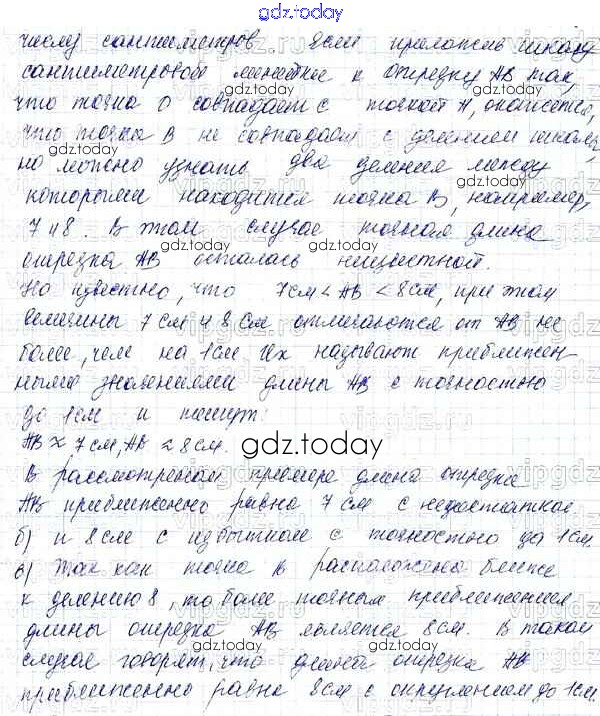 gdz.today
числу сантиметров. Если приложить шкалу
сантиметровой линейки к отрезку AB так,
что точка O совпадает с точкой A, окажется,
что точка B не совпадает с делением шкалы,
но можно узнать два деления между
которыми находится точка B, например,
7 и 8. В этом случае точная длина
отрезка AB осталась неизвестной.
Но известно, что 7см < AB < 8см, при этом
величины 7см и 8см отличаются от AB не
более, чем на 1см. Их называют приближен-
ными значениями длины AB с точностью
до 1см и пишут:
AB ≈ 7см, AB ≈ 8см.
gdz.today
В рассмотренном примере длина отрезка
AB приближенно равна 7 см с недостатком,
б) и 8см с избытком с точностью до 1см.
в) Так как точка B расположена ближе
к делению 8, то более точным приближением
длины отрезка AB является 8см. В таком
случае говорят, что длина отрезка AB
приближенно равна 8см с округлением до 1см.